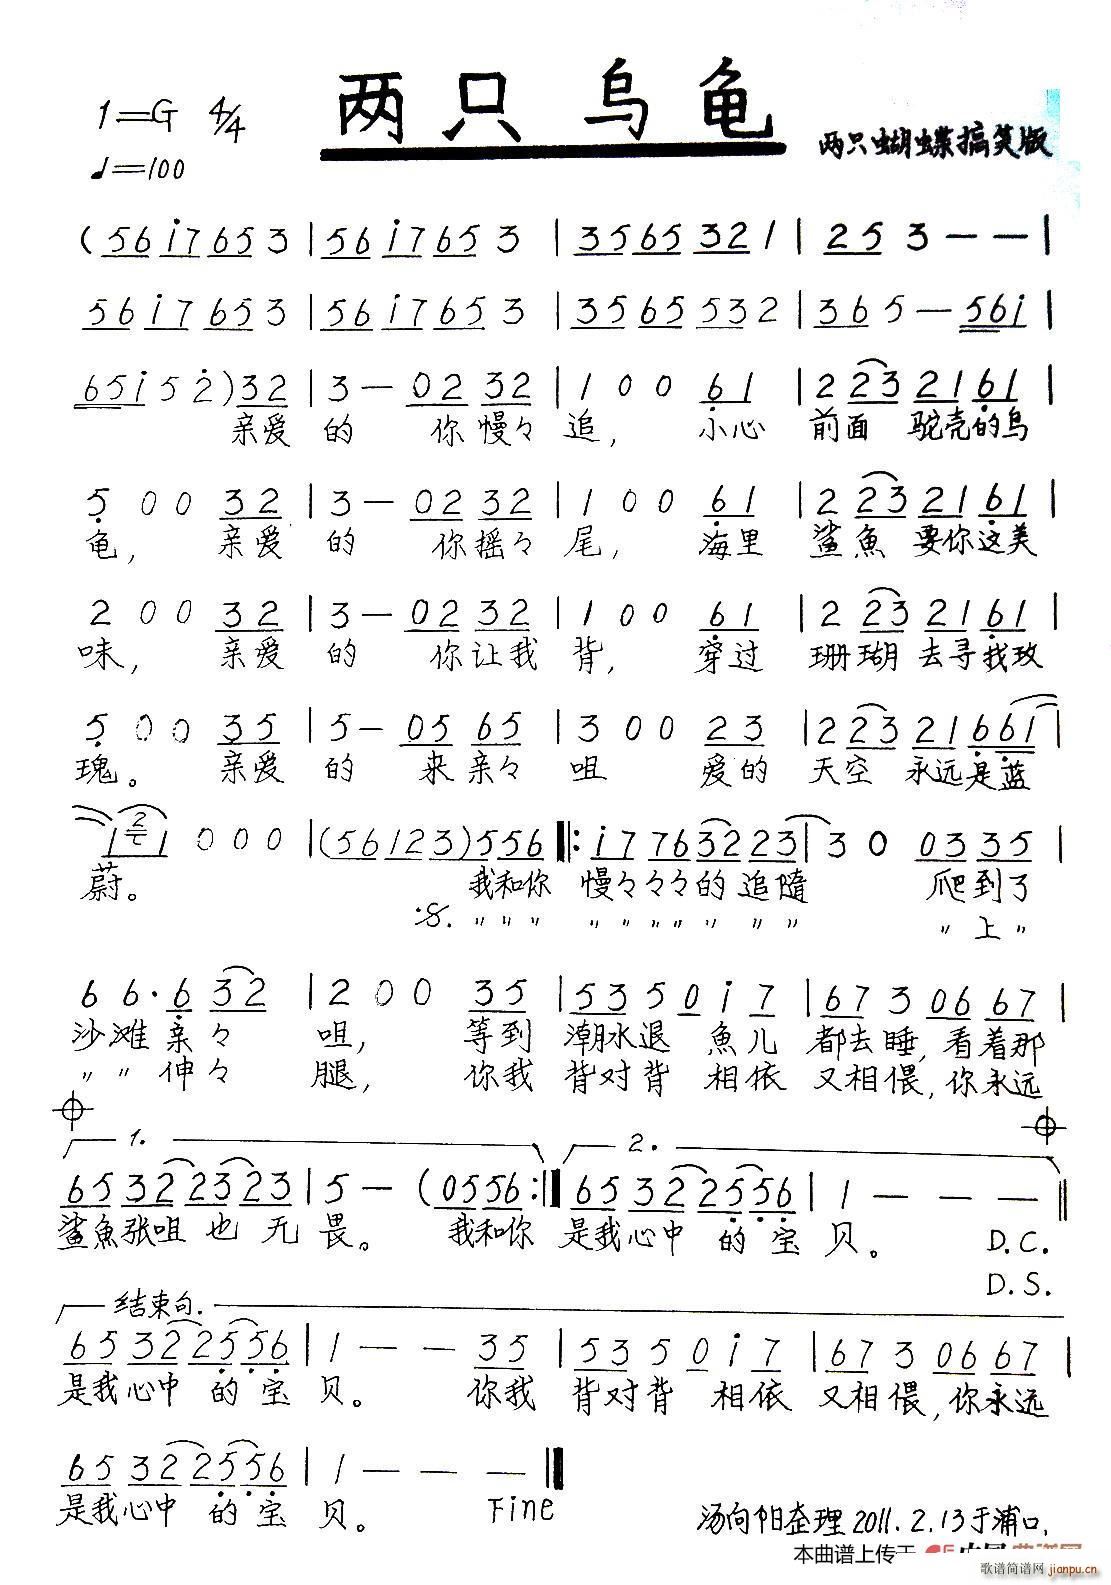 两只乌龟
1=G 4/4
♩=100
两只蝴蝶搞笑版
(56i7653|56i7653|3565321|253--|
56i7653|56i7653|3565532|365-56i|
65i52)32|3-0232|10061|2232161|
亲爱的 你慢々追, 小心 前面 驼壳的乌
50032|3-0232|10061|2232161|
龟, 亲爱的 你摇々尾, 海里 鲨魚 要你这美
20032|3-0232|10061|2232161|
味, 亲爱的 你让我背, 穿过 珊瑚 去寻找玫
50035|5-0565|30023|22321661|
瑰。 亲爱的 来亲々咀 爱的 天空 永远是蓝
1 2 1000|(56123)556‖:i7763223|300335|
蔚。 我和你 慢々々々的追隨 爬到了
:S. 〃〃〃 〃〃〃〃〃〃〃 〃上〃
66·632|20035|5350i7|6730667|
沙滩亲々 咀, 等到 潮水退 魚儿 都去睡, 看着那
〃〃伸々 腿, 你我 背对背 相依 又相偎, 你永远
1. 2.
653222323|5-(0556:‖653225556|1---‖
鲨魚张咀也无畏。 我和你 是我心中的宝贝。 D.C.
D.S.
结束句.
653225556|1--35|5350i7|6730667|
是我心中的宝贝。 你我 背对背 相依 又相偎, 你永远
653225556|1---‖
是我心中的宝贝。 Fine
汤向阳歪理2011.2.13于浦口,
本曲谱上传于
歌谱简谱网
jianpu.cn